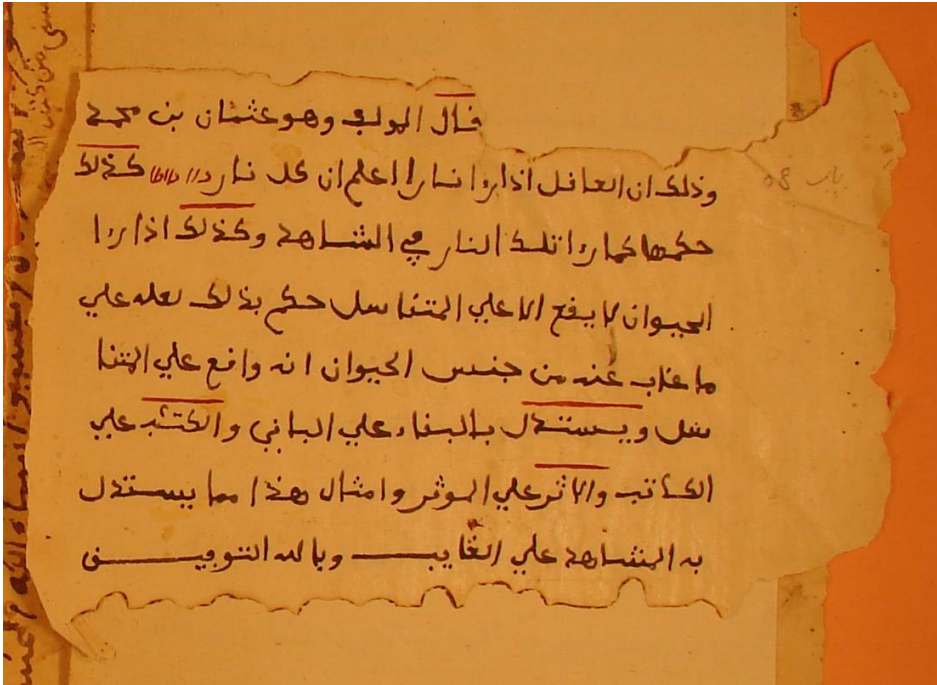 قال المولف وهو عثمان بن محمد
وذلك ان العاقل اذا رءا نارا اعلم ان كل نار كذلك
حكمها كما رءا تلك النار في الشاهد وكذلك اذا رءا
الحيوان لا يقع الا علي المتناسل حكم بذلك علي
ما غاب عنه من جنس الحيوان انه واقع علي المتنا
سل ويستدل بالبناء علي الباني والكتب علي
الكاتب والاثر علي الموثر وامثال هذا مما يستدل
به المشاهد علي الغايب وبالله التوفيق